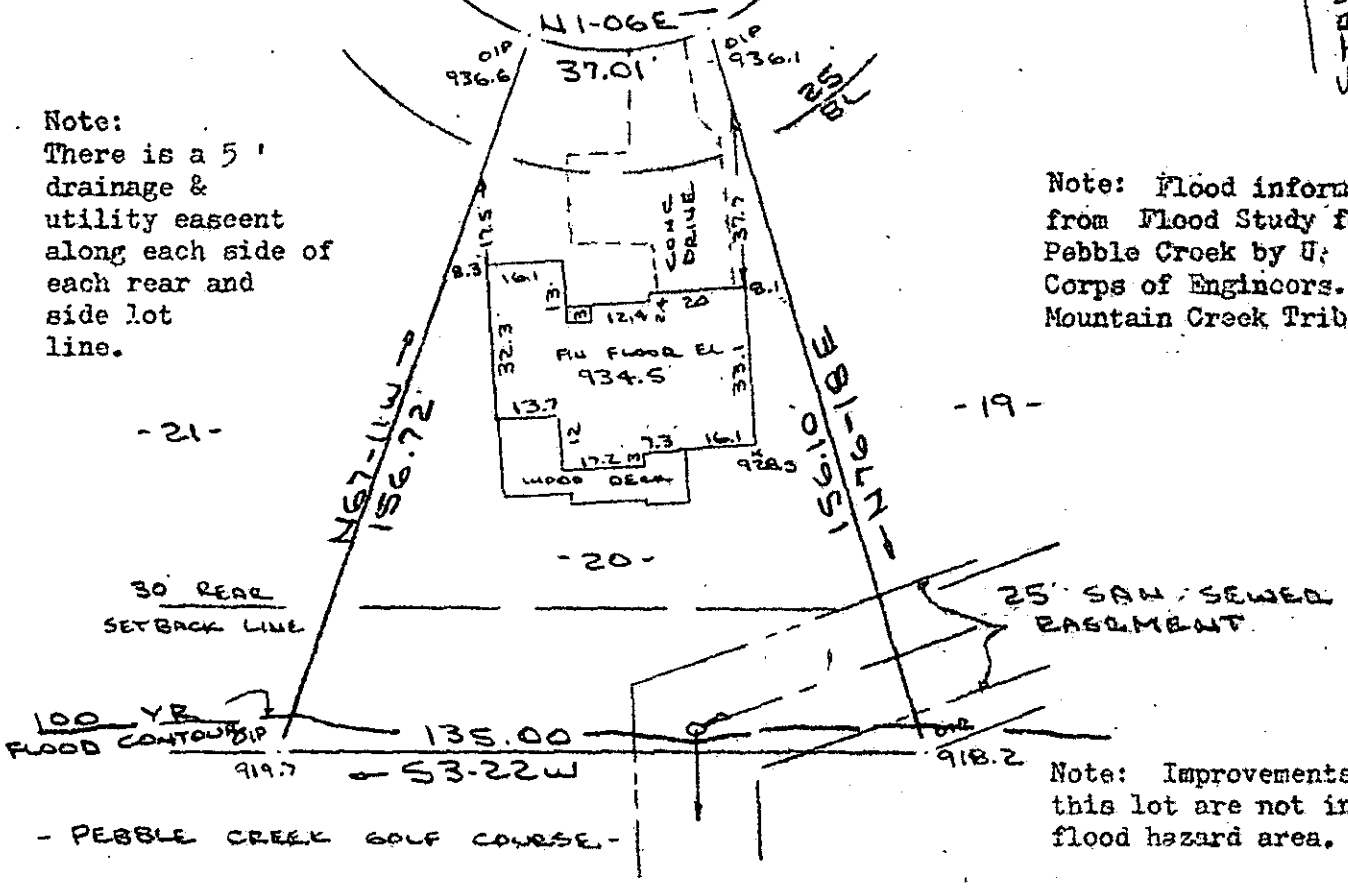 N1-06E
37.01'
OIP
936.6
OIP
936.1
25
BL
Note:
There is a 5 '
drainage &
utility eascent
along each side of
each rear and
side lot
line.
Note: Flood inform
from Flood Study f
Pebble Croek by U.
Corps of Engincors.
Mountain Creek Trib
17.5
8.3
16.1
13
3
12.4
2.4
20
CONC
DRIVE
37.7
8.1
32.3
FIN FLOOR EL
934.5
33.1
13.7
12
17.2
3
7.3
16.1
928.5
WOOD DECK
N67-11W
156.72
N76-18E
156.10
-21-
-19-
-20-
30' REAR
SETBACK LINE
25' SAN. SEWER
EASEMENT
100 YR
FLOOD CONTOUR
OIP
919.7
135.00
S3-22W
918.2
- PEBBLE CREEK GOLF COURSE -
Note: Improvements
this lot are not in
flood hazard area.